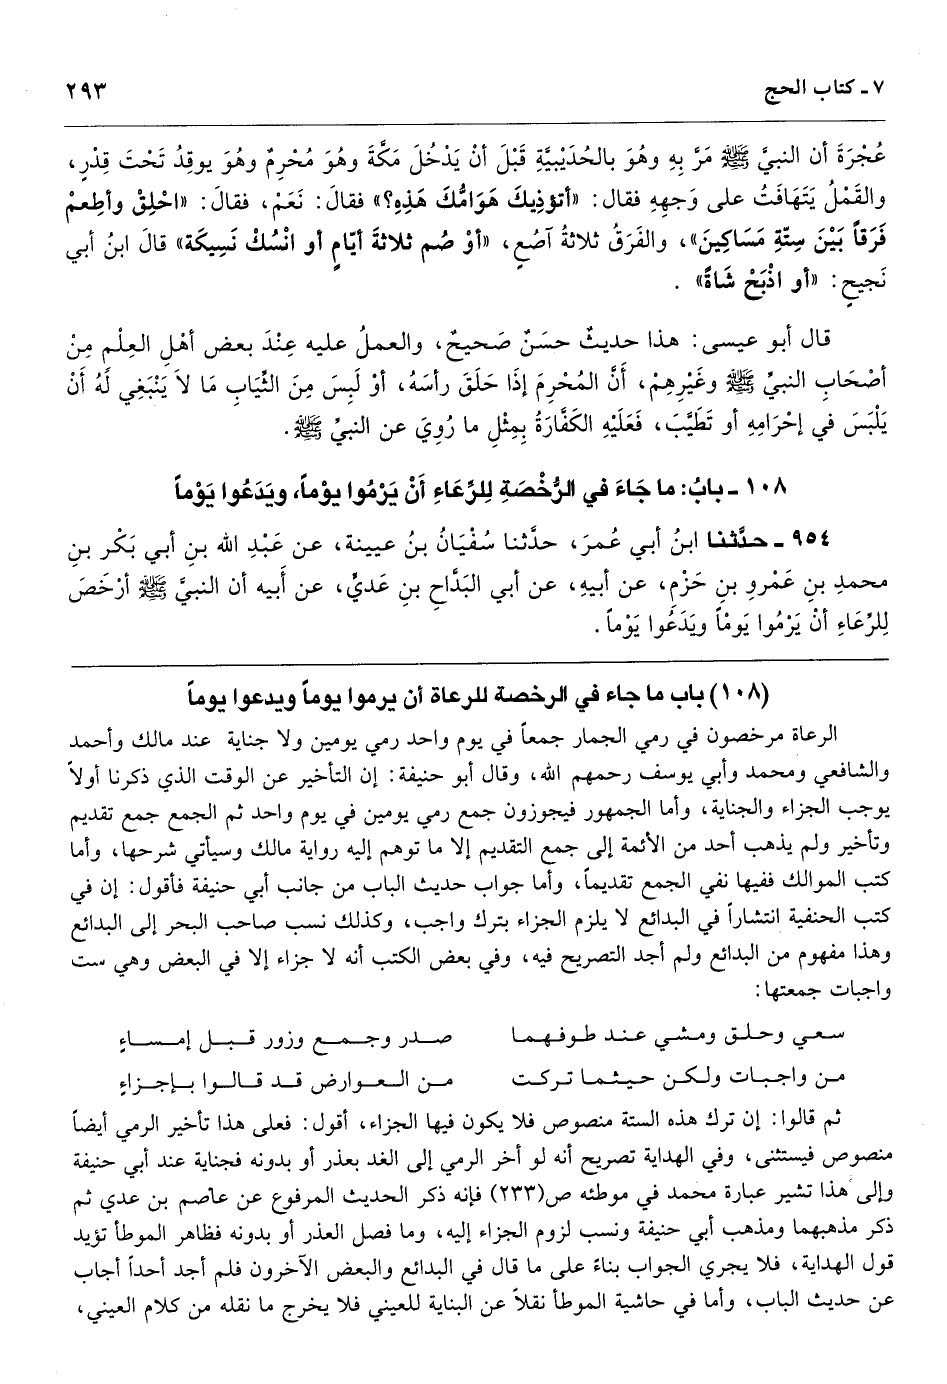 ٧ ـ كتاب الحج ٢٩٣
عُجْرَةَ أن النبيَّ ﷺ مَرَّ بِهِ وهُوَ بالحُدَيْبِيَّةِ قَبْلَ أنْ يَدْخُلَ مَكَّةَ وهُوَ مُحْرِمٌ وهُوَ يوقِدُ تَحْتَ قِدْرٍ،
والقَمْلُ يَتَهَافَتُ على وَجهِهِ فقال: «أتؤذِيكَ هَوَامُّكَ هَذِهِ؟» فقالَ: نَعَمْ، فقالَ: «احْلِقْ وأطعِمْ
فَرَقاً بَيْنَ سِتّةِ مَسَاكِينَ»، والفَرَقُ ثلاثةُ آصُعٍ، «أوْ صُم ثلاثةَ أيّامٍ أو انْسُكْ نَسِيكَة» قالَ ابنُ أبي
نَجيحٍ: «أو اذْبَحْ شَاةً» .
قال أبو عيسى: هذا حديثٌ حسَنٌ صَحيحٌ، والعملُ عليه عِنْدَ بعض أهْلِ العِلْم مِنْ
أصْحَابِ النبيِّ ﷺ وغَيْرِهِمْ، أَنَّ المُحْرِمَ إذَا حَلَقَ رأسَهُ، أوْ لَبِسَ مِنَ الثِّيَابِ مَا لاَ يَنْبَغِي لَهُ أَنْ
يَلْبَسَ في إحْرَامِهِ أو تَطَيَّبَ، فَعَلَيْهِ الكَفَّارَةُ بِمِثْلِ ما رُوِيَ عن النبيِّ ﷺ.
١٠٨ ـ بابُ: ما جَاءَ في الرُّخْصَةِ لِلرِّعَاءِ أنْ يَرْمُوا يوْماً، ويَدَعُوا يَوْماً
٩٥٤ ـ حدَّثنا ابنُ أبي عُمرَ، حدَّثنا سُفْيَانُ بنُ عيينة، عن عَبْدِ الله بنِ أبي بَكْر بنِ
محمدِ بنِ عَمْرِو بنِ حَزْمٍ، عن أبيهِ، عن أبي البَدَّاحِ بنِ عَديٍّ، عن أَبيه أن النبيَّ ﷺ أرْخَصَ
لِلرِّعَاءِ أنْ يَرْمُوا يَومْاً ويَدَعُوا يَوْماً.
(١٠٨) باب ما جاء في الرخصة للرعاة أن يرموا يوماً ويدعوا يوماً
الرعاة مرخصون في رمي الجمار جمعاً في يوم واحد رمي يومين ولا جناية عند مالك وأحمد
والشافعي ومحمد وأبي يوسف رحمهم الله، وقال أبو حنيفة: إن التأخير عن الوقت الذي ذكرنا أولاً
يوجب الجزاء والجناية، وأما الجمهور فيجوزون جمع رمي يومين في يوم واحد ثم الجمع جمع تقديم
وتأخير ولم يذهب أحد من الأئمة إلى جمع التقديم إلا ما توهم إليه رواية مالك وسيأتي شرحها، وأما
كتب الموالك ففيها نفي الجمع تقديماً، وأما جواب حديث الباب من جانب أبي حنيفة فأقول: إن في
كتب الحنفية انتشاراً في البدائع لا يلزم الجزاء بترك واجب، وكذلك نسب صاحب البحر إلى البدائع
وهذا مفهوم من البدائع ولم أجد التصريح فيه، وفي بعض الكتب أنه لا جزاء إلا في البعض وهي ست
واجبات جمعتها:
سعي وحلق ومشي عند طوفهما صدر وجمع وزور قبل إمساءٍ
من واجبات ولكن حيثما تركت من العوارض قد قالوا بإجزاءِ
ثم قالوا: إن ترك هذه الستة منصوص فلا يكون فيها الجزاء، أقول: فعلى هذا تأخير الرمي أيضاً
منصوص فيستثنى، وفي الهداية تصريح أنه لو أخر الرمي إلى الغد بعذر أو بدونه فجناية عند أبي حنيفة
وإلى هذا تشير عبارة محمد في موطئه ص(٢٣٣) فإنه ذكر الحديث المرفوع عن عاصم بن عدي ثم
ذكر مذهبهما ومذهب أبي حنيفة ونسب لزوم الجزاء إليه، وما فصل العذر أو بدونه فظاهر الموطأ تؤيد
قول الهداية، فلا يجري الجواب بناءً على ما قال في البدائع والبعض الآخرون فلم أجد أحداً أجاب
عن حديث الباب، وأما في حاشية الموطأ نقلاً عن البناية للعيني فلا يخرج ما نقله من كلام العيني،